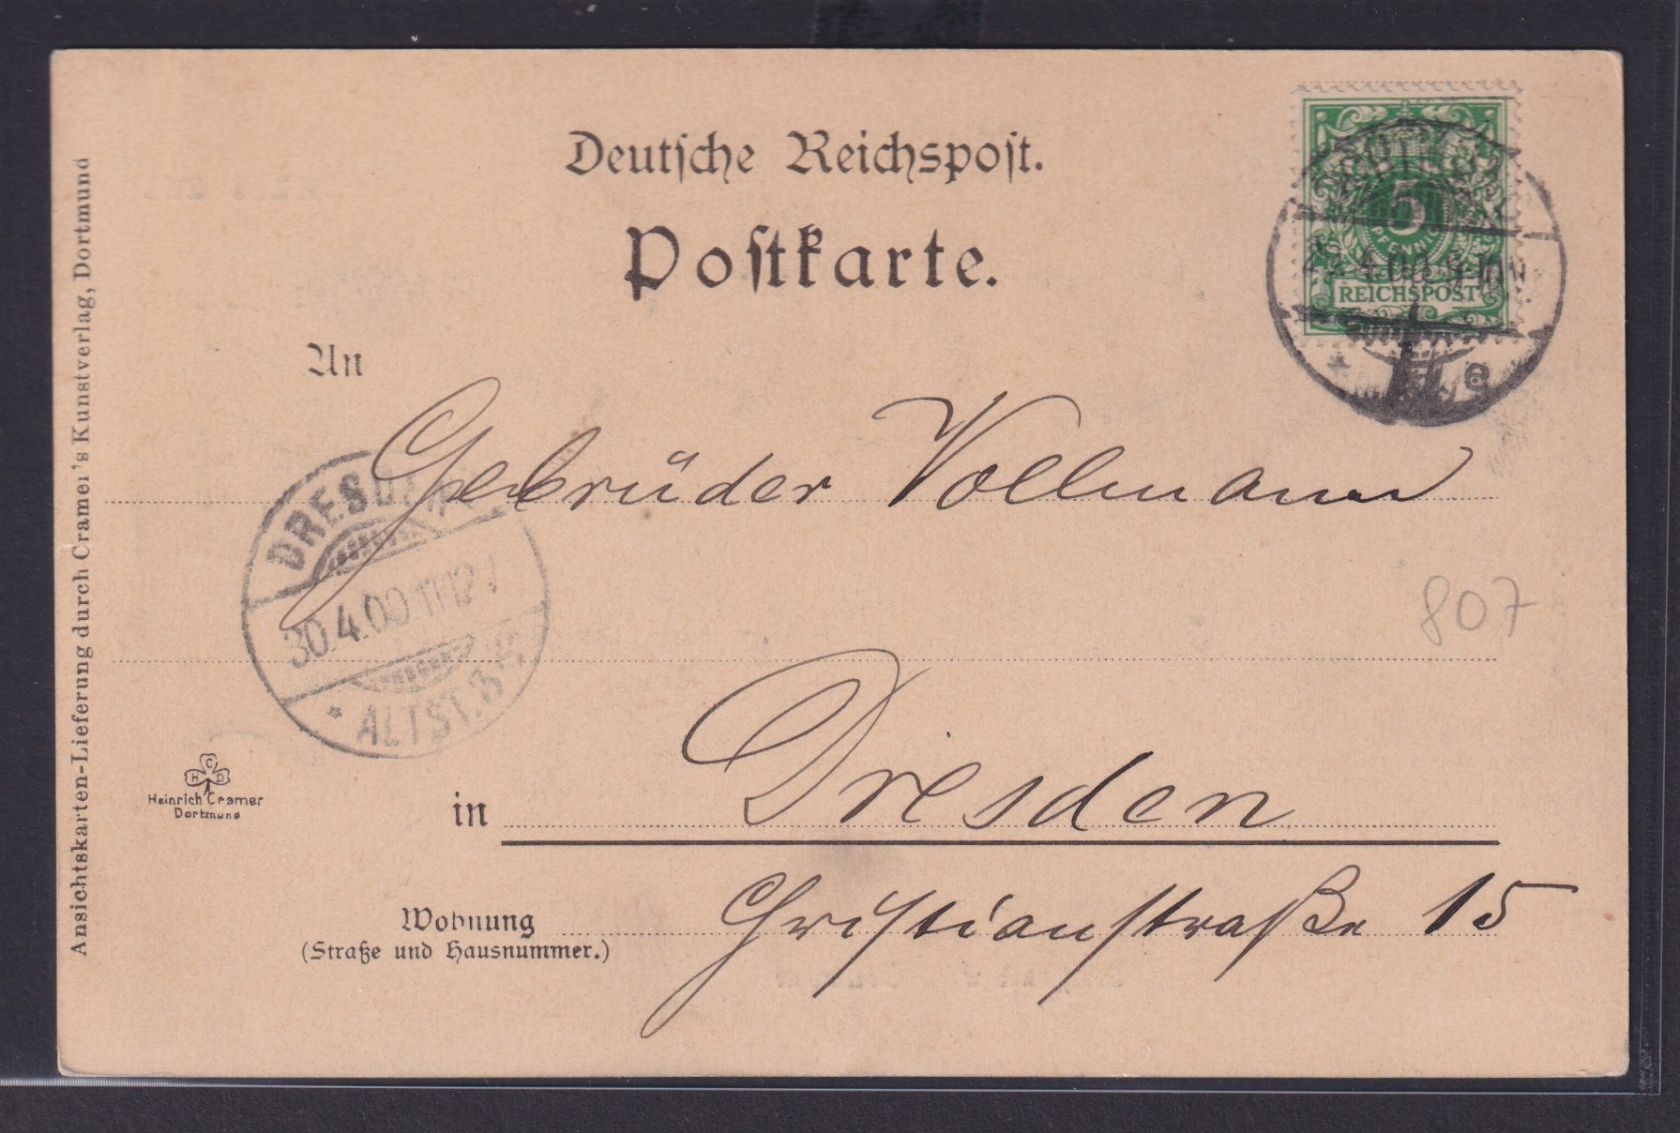 Deutsche Reichspost.
Postkarte.
5
PFENNIG
REICHSPOST
4.00.9-10N.
* e
An
Gebrüder Vollmann
DRESDEN
30.4.00.11-12
* ALTST. 3
807
H C D
Heinrich Cramer
Dortmund
in Dresden
Wohnung
(Straße und Hausnummer.)
Christianstraße 15
Ansichtskarten-Lieferung durch Cramer's Kunstverlag, Dortmund